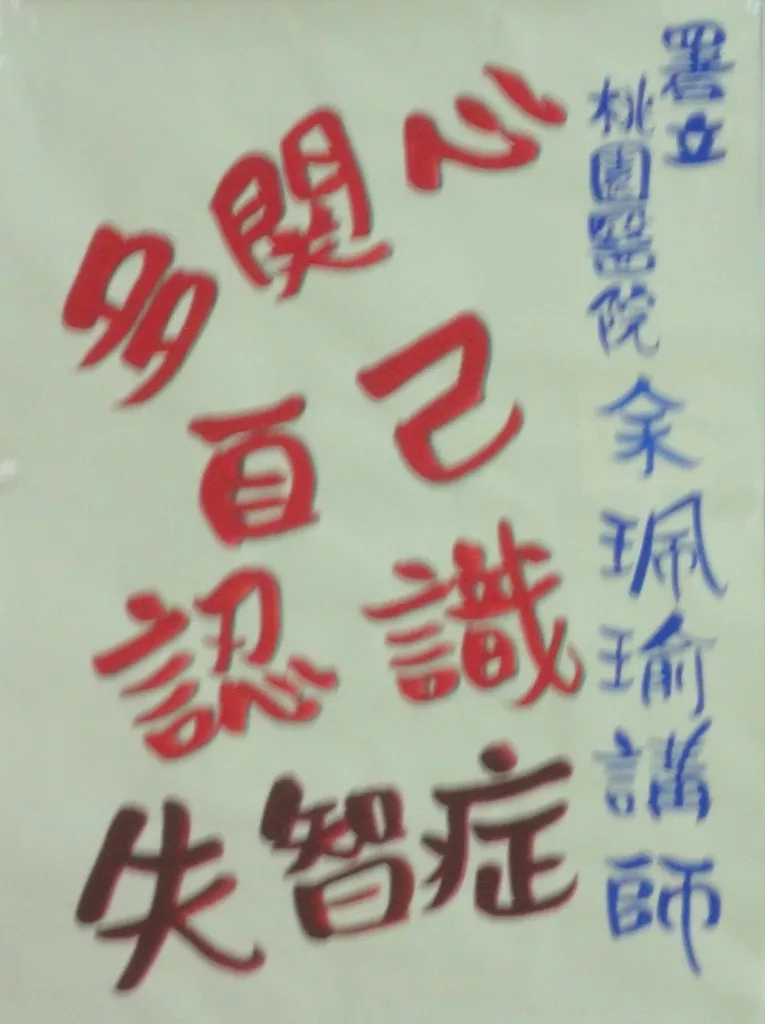 多關心
自己
認識
失智症
署立
桃園醫院
余珮瑜講師